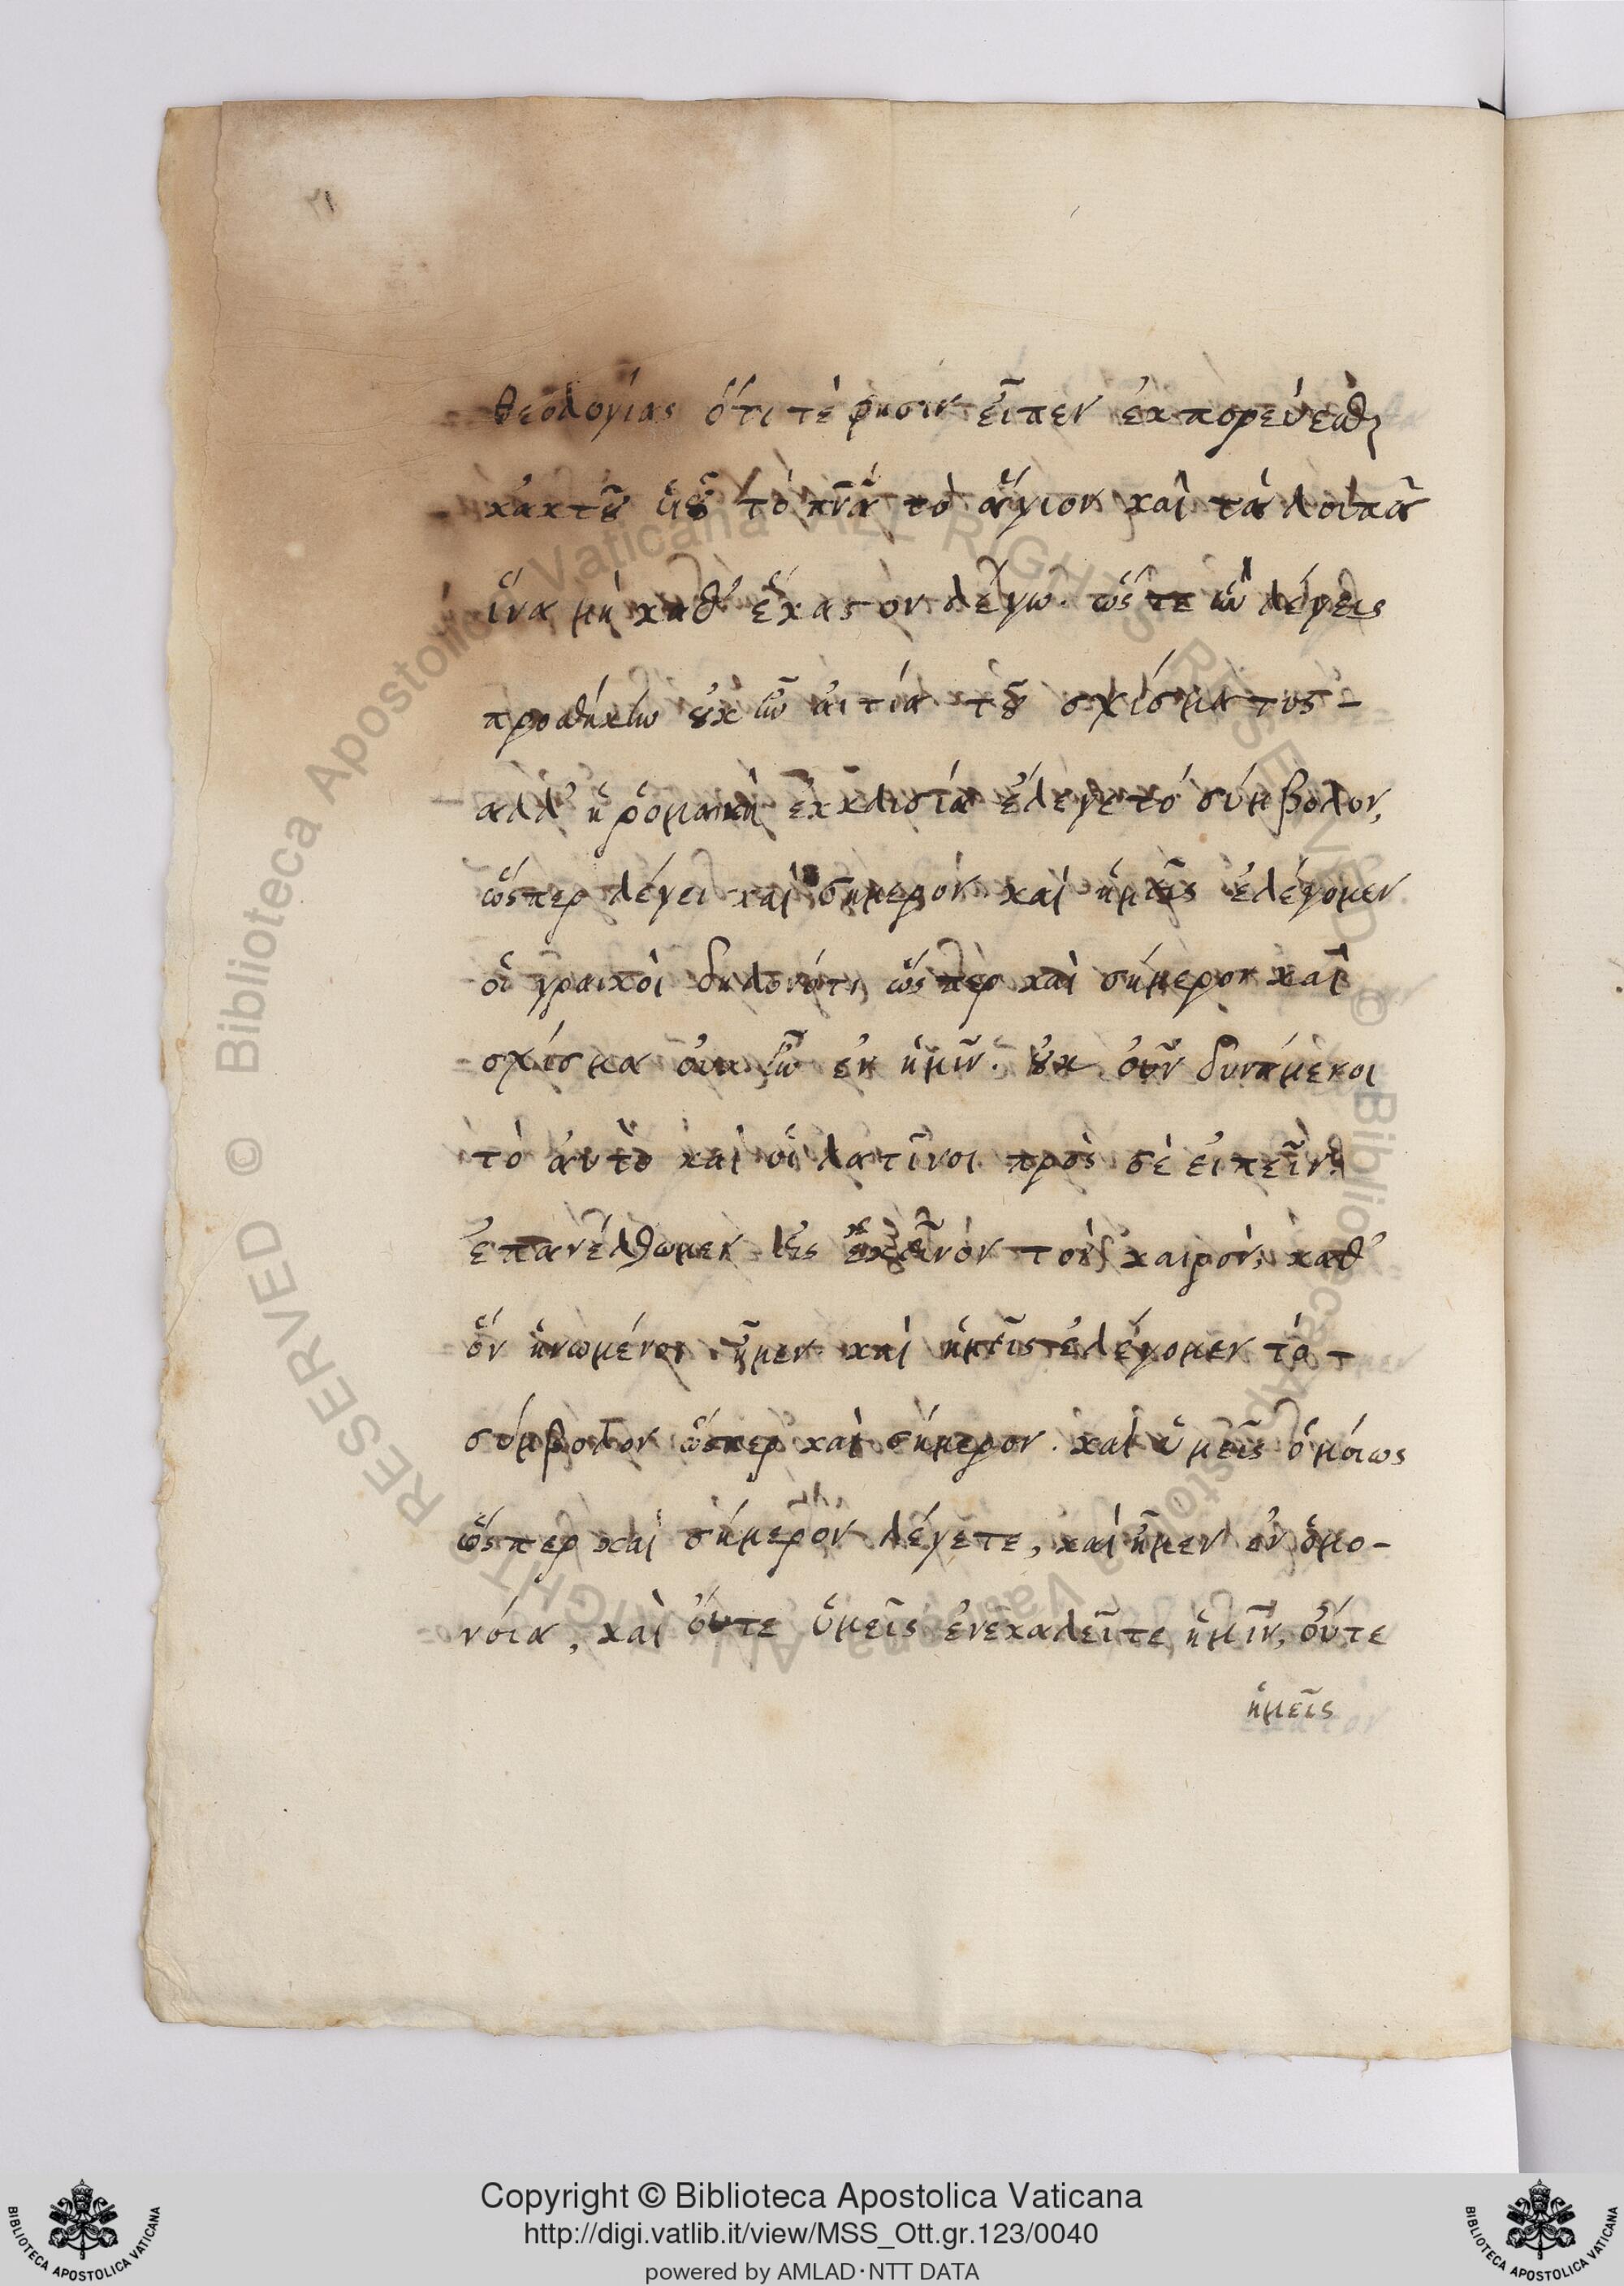 θεολογίας ὅτι τέ φησιν εἶπεν ἐκπορεύεσθαι
κἀκ τοῦ ὑιοῦ τὸ πνᾶ τὸ ἅγιον καὶ τὰ λοιπὰ
ἵνα μὴ καθ' ἕκαστον λέγω. ὥστε ἣν λέγεις
προσθήκην οὐκ ἦν ἀιτία τοῦ σχίσματος –
αλλ' ἡ ῥομαικὴ ἐκκλισία ἔλεγε τό σύμβολον,
ὥσπερ λέγει καὶ σήμερον. καὶ ἡμεῖς ἐλέγομεν
οἱ γραικοὶ δηλονότι, ὥσπερ καὶ σήμερον καὶ
σχίσμα ὀυκ ἦν ἐν ἡμῖν. οὐκ ὀῦν δυνάμενοι
τὸ ἀυτὸ καὶ οἱ λατῖνοι πρὸς σὲ ειπεῖν.
ἐπανέλθωμεν εἰς ἐκεῖνόν τὸν καιρόν, καθ'
ὅν ἡνωμένοι ἦμεν καὶ ἡμεῖς ἐλέγομεν τό –
σύμβολον ὥσπερ καὶ σήμερον. καὶ ὑμεῖς ὁμοίως
ὥσπερ καὶ σήμερον λέγετε, καὶ ἦμεν ἐν ὁμο-
νοία, καὶ ὄυτε ὑμεῖς ἐνεκαλεῖτε ἡμῖν, ὄυτε
ἡμεῖς
Copyright © Biblioteca Apostolica Vaticana
http://digi.vatlib.it/view/MSS_Ott.gr.123/0040
powered by AMLAD·NTT DATA